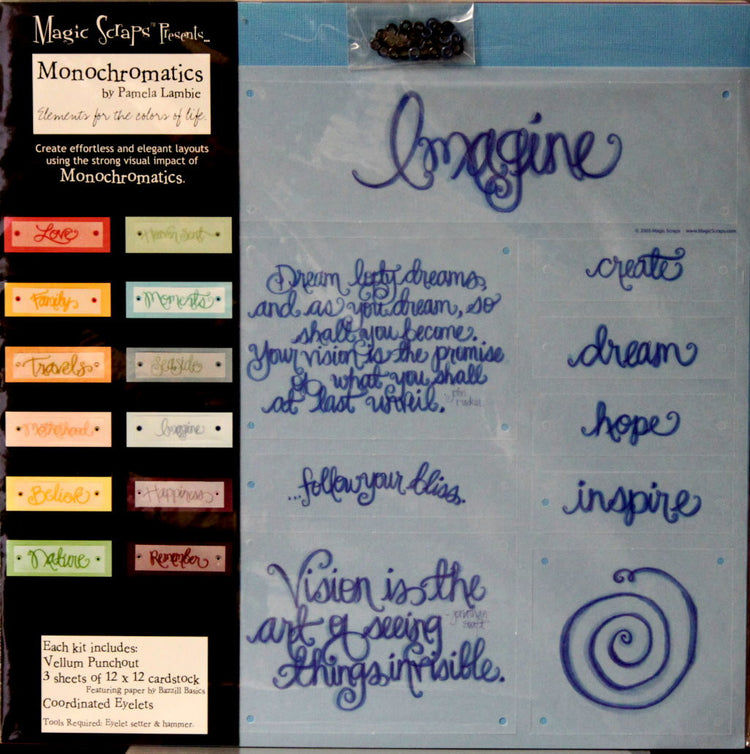 Magic Scraps™ Presents...
Monochromatics
by Pamela Lambie
Elements for the colors of life.
Create effortless and elegant layouts
using the strong visual impact of
Monochromatics.
Love
Heaven Sent
Family
Moments
Travels
Seaside
Motherhood
Imagine
Believe
Happiness
Nature
Remember
Each kit includes:
Vellum Punchout
3 sheets of 12 x 12 cardstock
Featuring paper by Bazzill Basics
Coordinated Eyelets
Tools Required: Eyelet setter & hammer.
Imagine
© 2005 Magic Scraps www.MagicScraps.com
Dream lofty dreams,
and as you dream, so
shall you become.
Your vision is the promise
of what you shall
at last unveil.
- john
ruskin
...follow your bliss.
Vision is the
art of seeing
things invisible.
- jonathan
swift
create
dream
hope
inspire